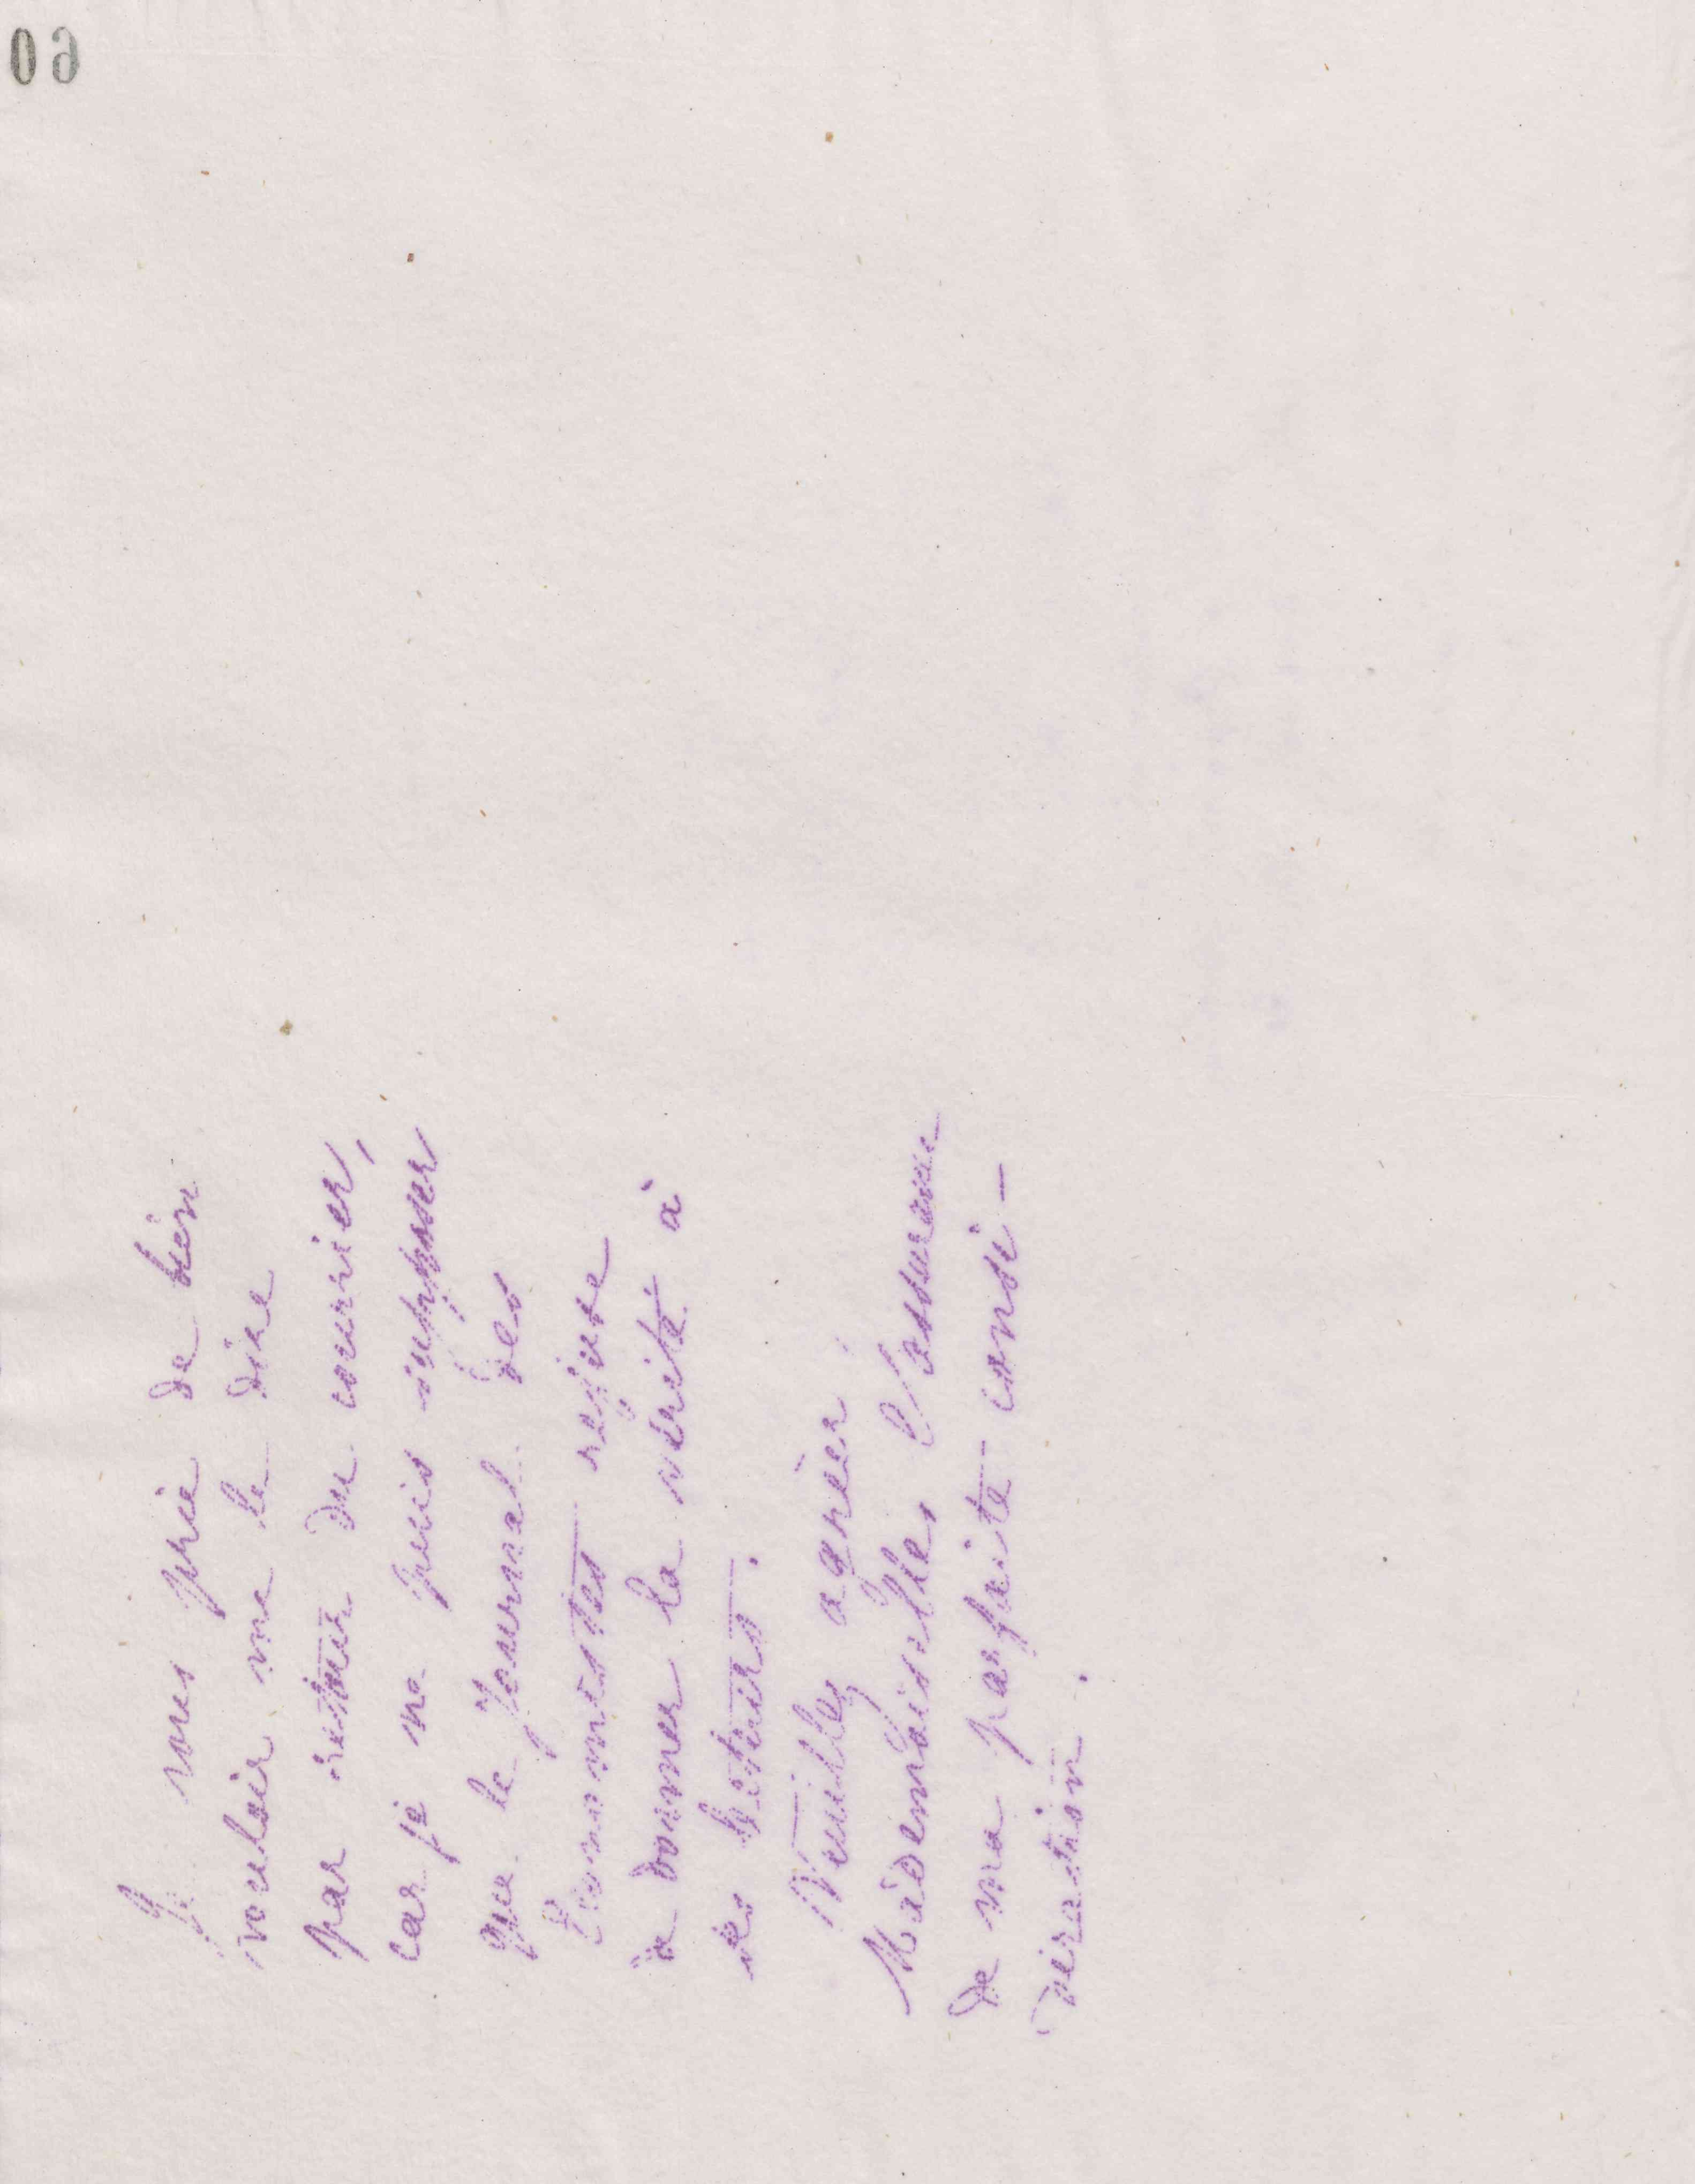 Je vous prie de bien
vouloir me le dire
par retour du courrier,
car je ne puis supposer
que le Journal des
Économistes refuse
de donner la vérité à
ses lecteurs.
Veuillez agréer,
Mademoiselle, l'assurance
de ma parfaite consi-
dération.